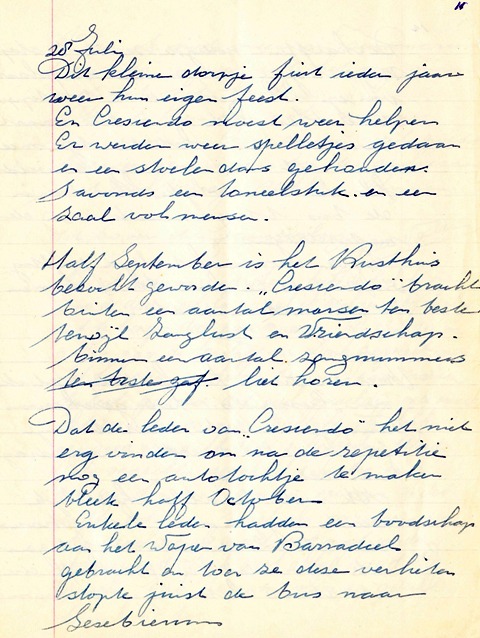 28 Juli
Dit kleine dorpje fiert ieder jaar
weer hun eigen feest.
En Crescendo moest weer helpen
Er werden weer spelletjes gedaan
en een stoelendans gehouden.
S'avonds een toneelstuk en een
zaal vol mensen.
Half September is het Rusthuis
bezocht geworden. „Crescendo" bracht
buiten een aantal marsen ten beste
terwijl Zanglust en Vriendschap
binnen een aantal zangnummers
ten beste gaf liet horen.
Dat de leden van „Crescendo" het niet
erg vinden om na de repetitie
nog een autotochtje te maken
bleek half October
Enkele leden hadden een boodschap
aan het Wapen van Barradeel
gebracht en toen ze deze verlieten
stopte juist de bus naar
Sexbierum